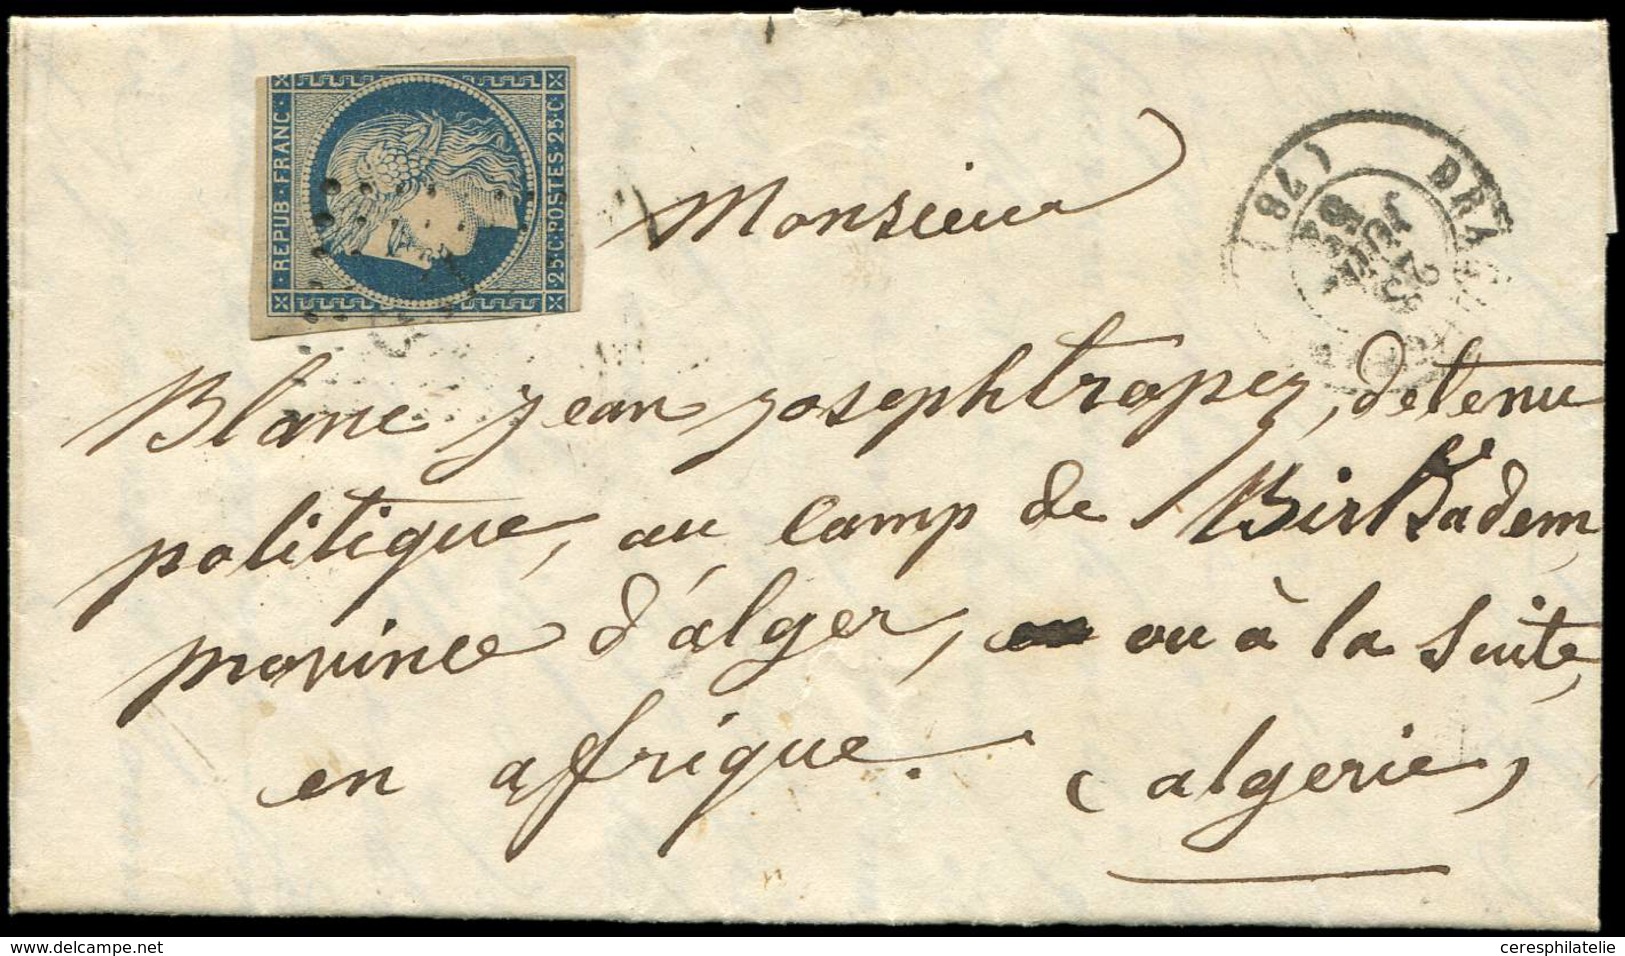 REPUB·FRANC·
25·C·POSTES·25·C
DRAG
(78)
23
JUIL
52
Monsieur
Blanc jean josephtropez, detenu
politique, au camp de BirKadem,
province d'alger, ou à la suite,
en afrique.
(algerie,
www.delcampe.net
ceresphilatelie